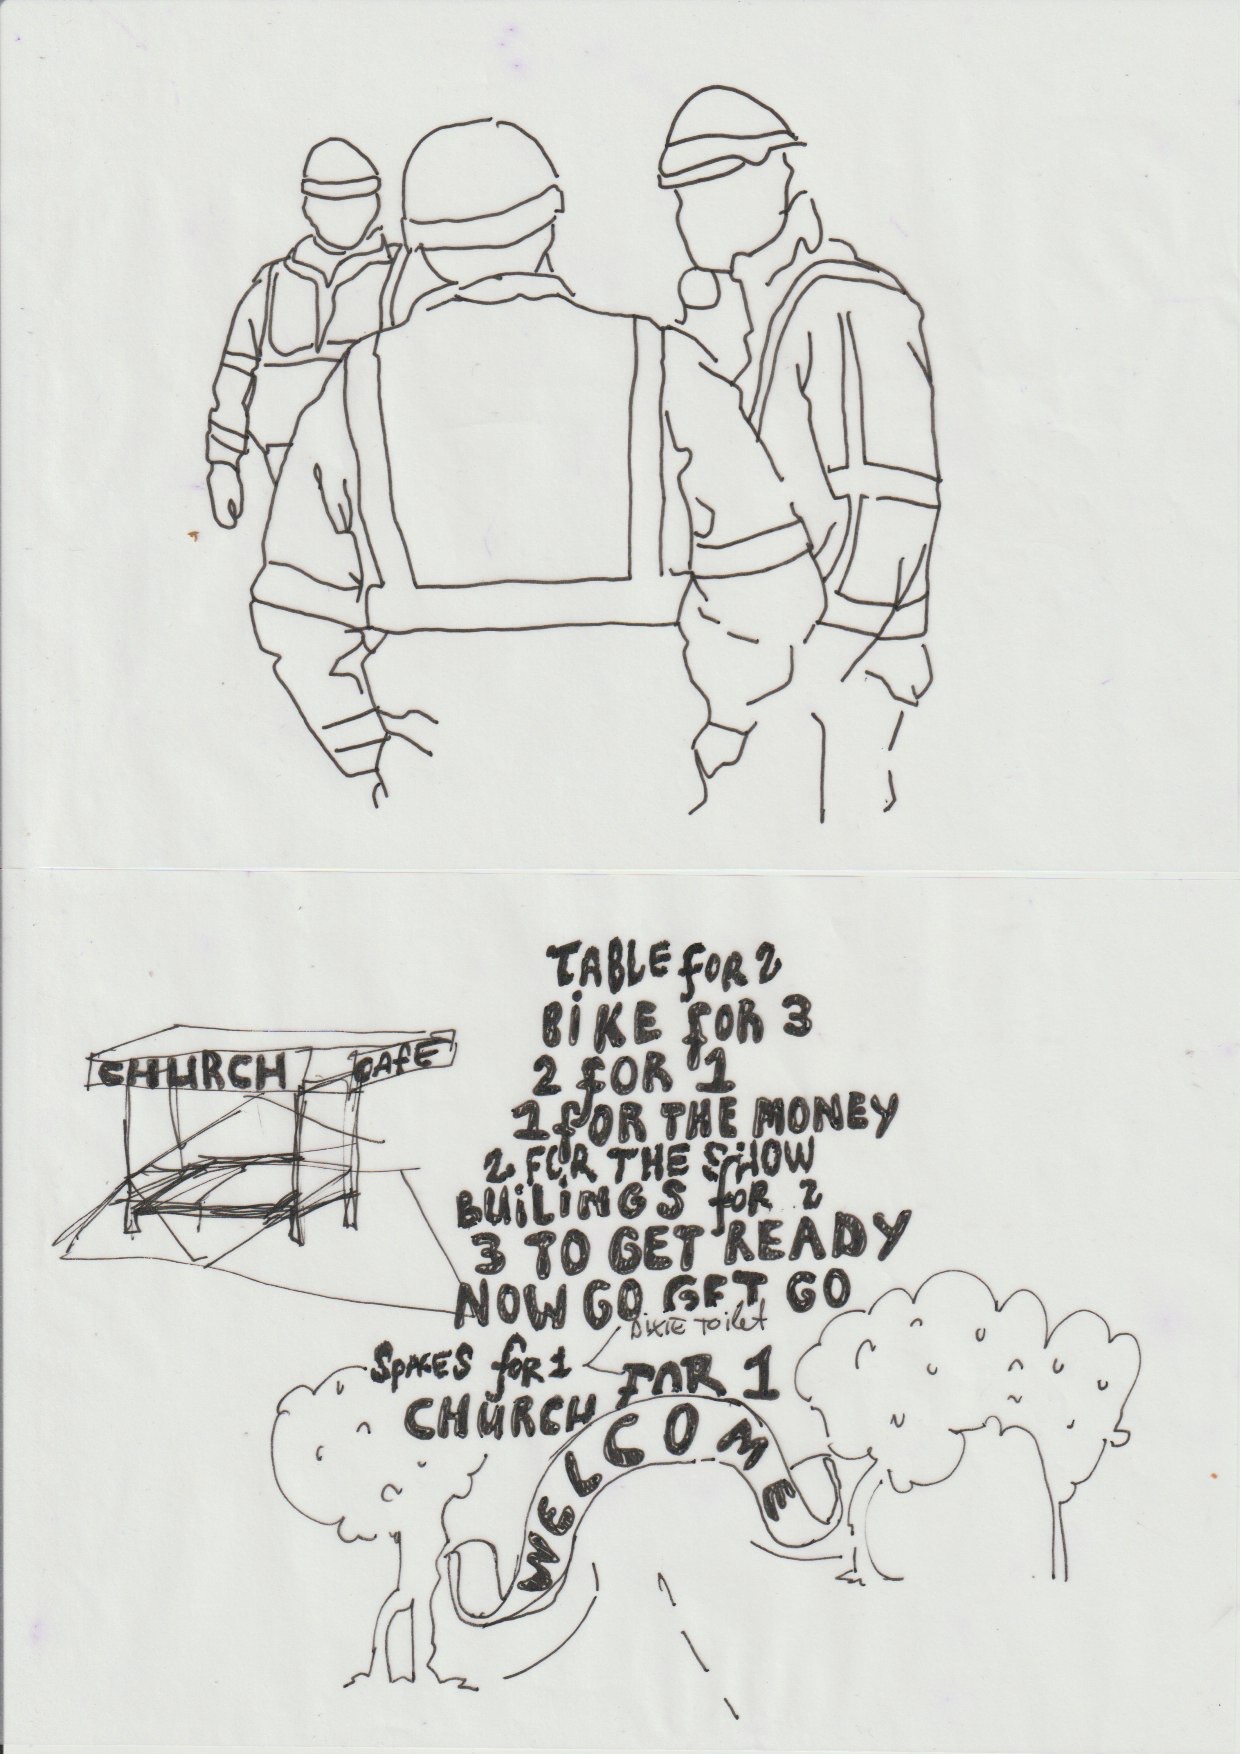 TABLE for 2
BiKE for 3
2 fOR 1
1 fOR THE MONEY
2 FOR THE SHOW
BUiLiNGS for 2
3 TO GET READY
NOW GO GET GO
DiXIE Toilet
SPACES for 1
FOR 1
CHURCH
CHURCH CAfE
WELCOME